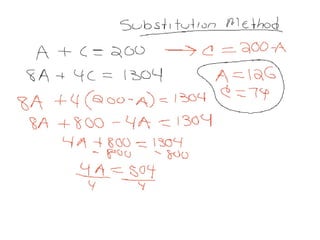 Substitution Method
A + C = 200 → C = 200-A
8A + 4C = 1304
A = 126
C = 74
8A + 4(200-A) = 1304
8A + 800 - 4A = 1304
4A + 800 = 1304
- 800 - 800
4A = 504
4 4